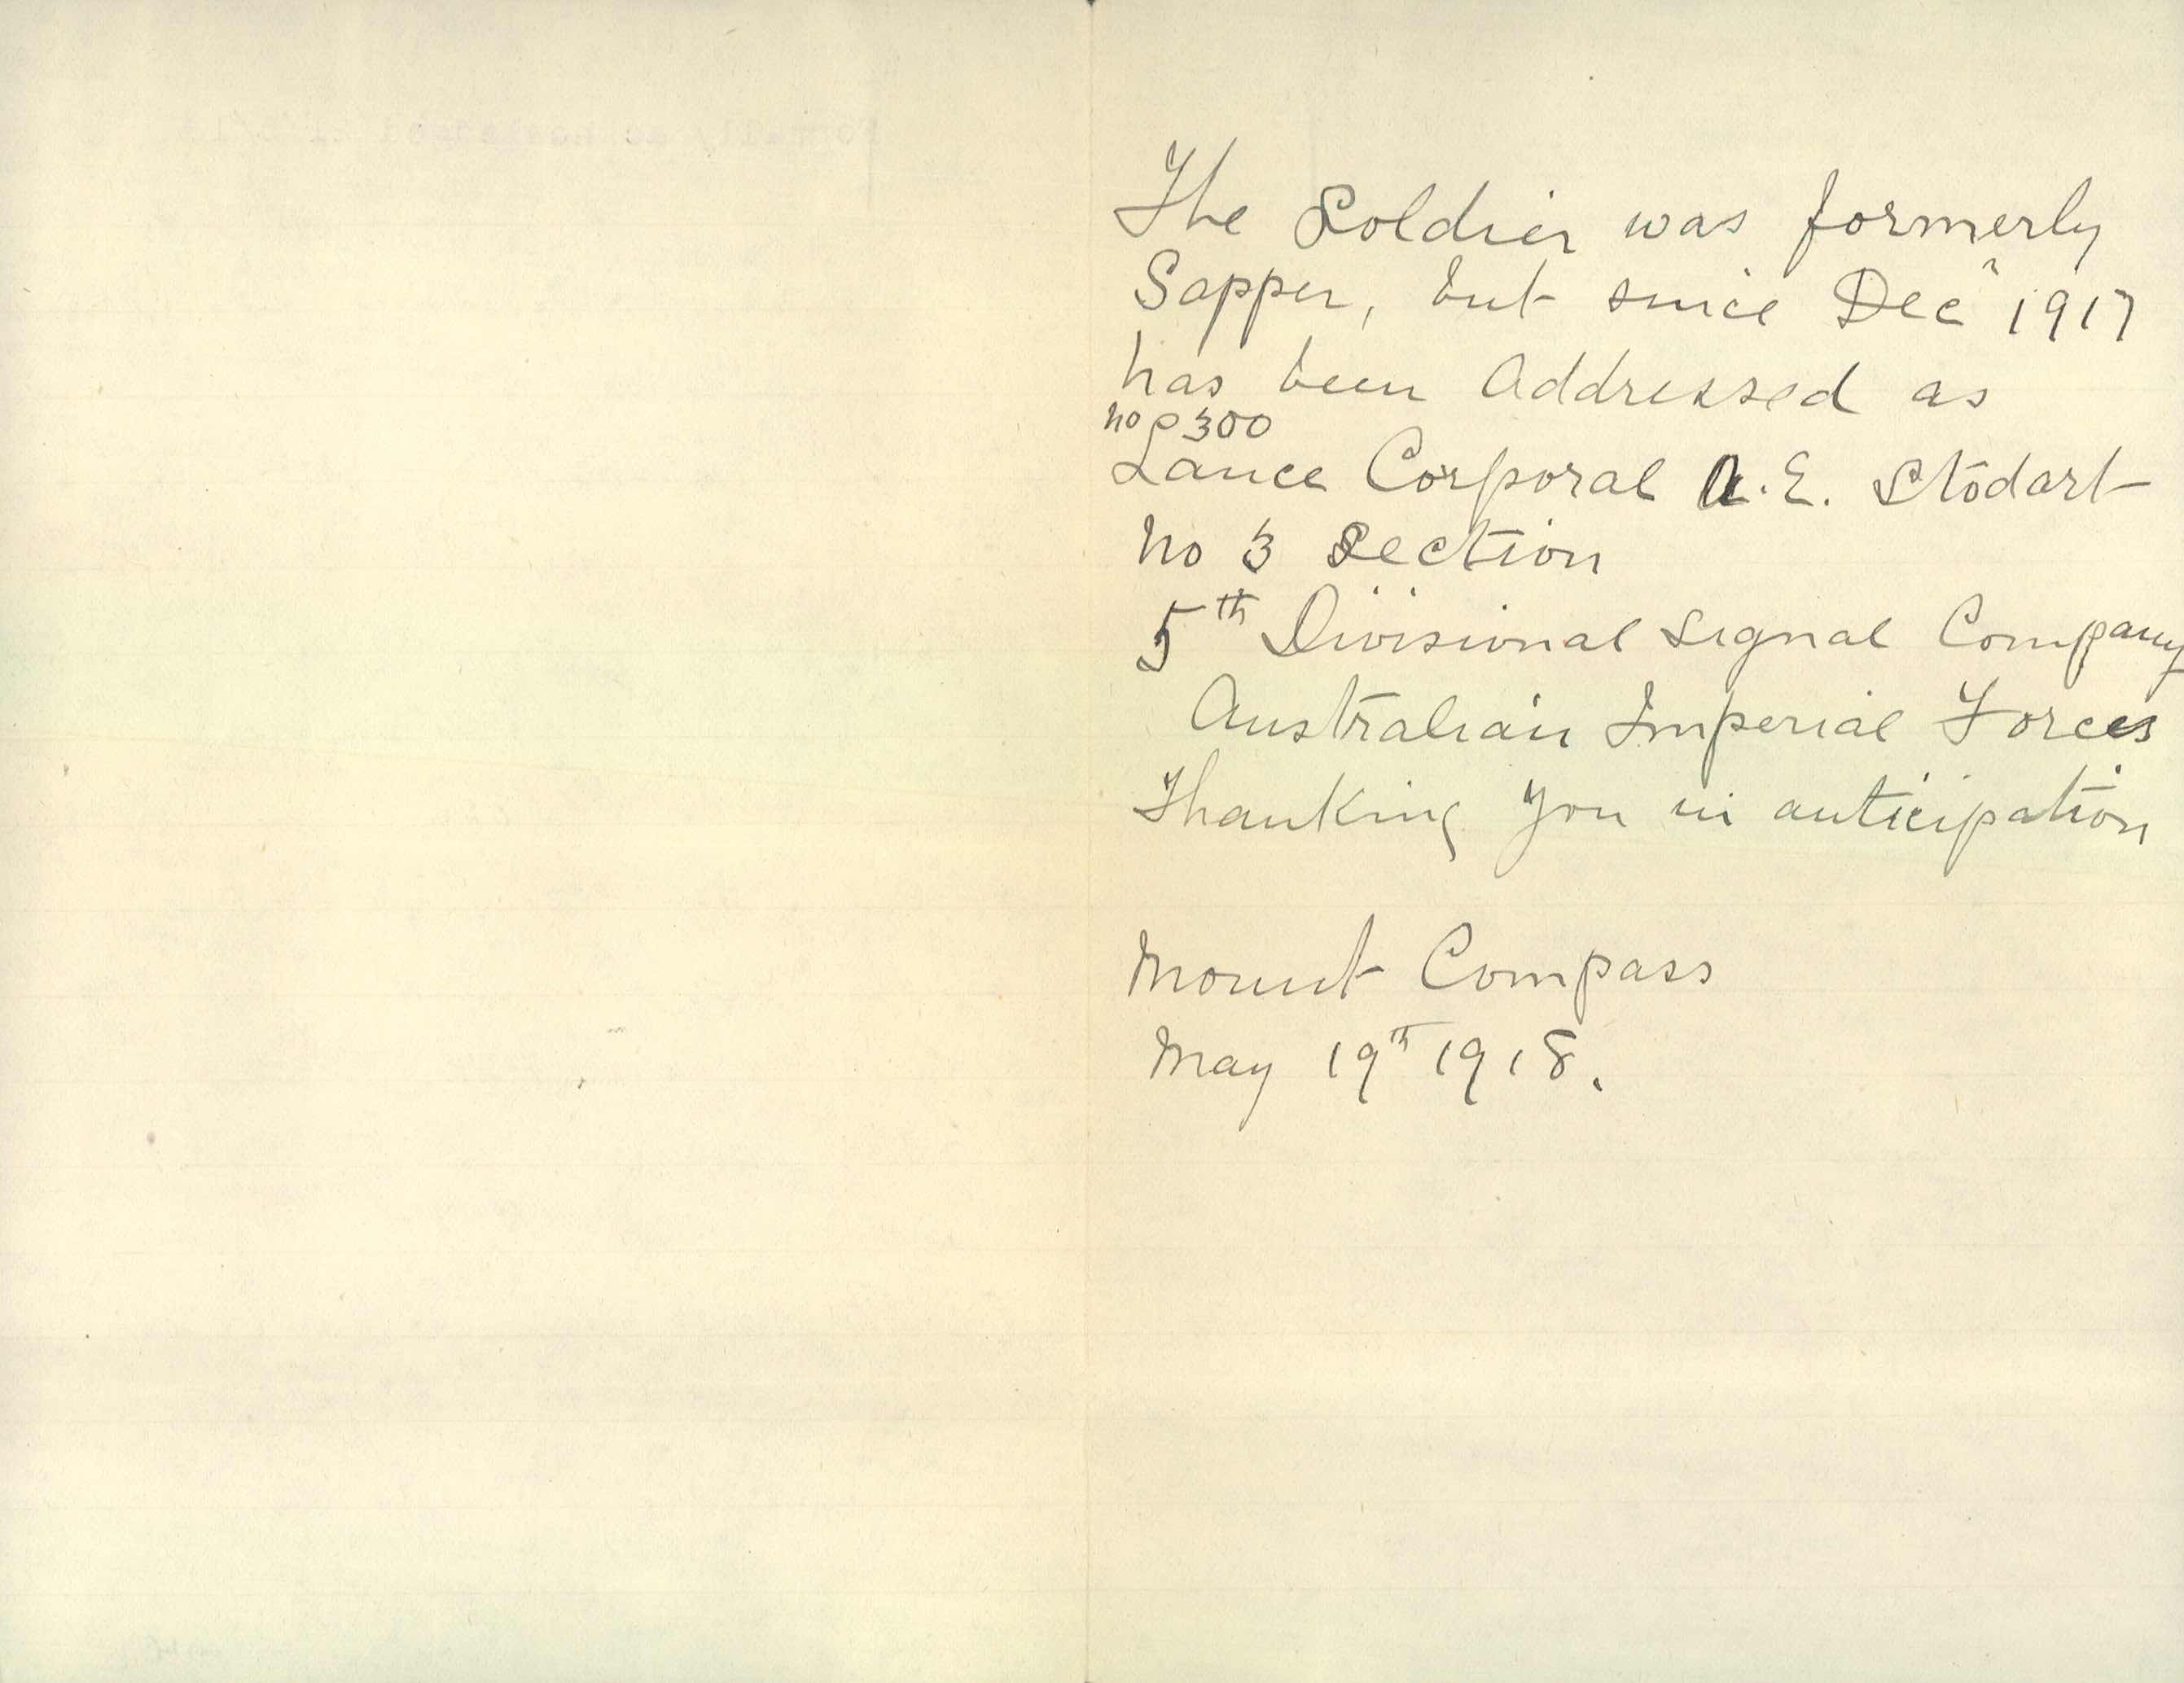 The Soldier was formerly
Sapper, but since Decr 1917
has been Addressed as
no 300
Lance Corporal A. E. Stodart
No 3 Section
5th Divisional Signal Company
Australian Imperial Forces
Thanking you in anticipation
Mount Compass
May 19th 1918.